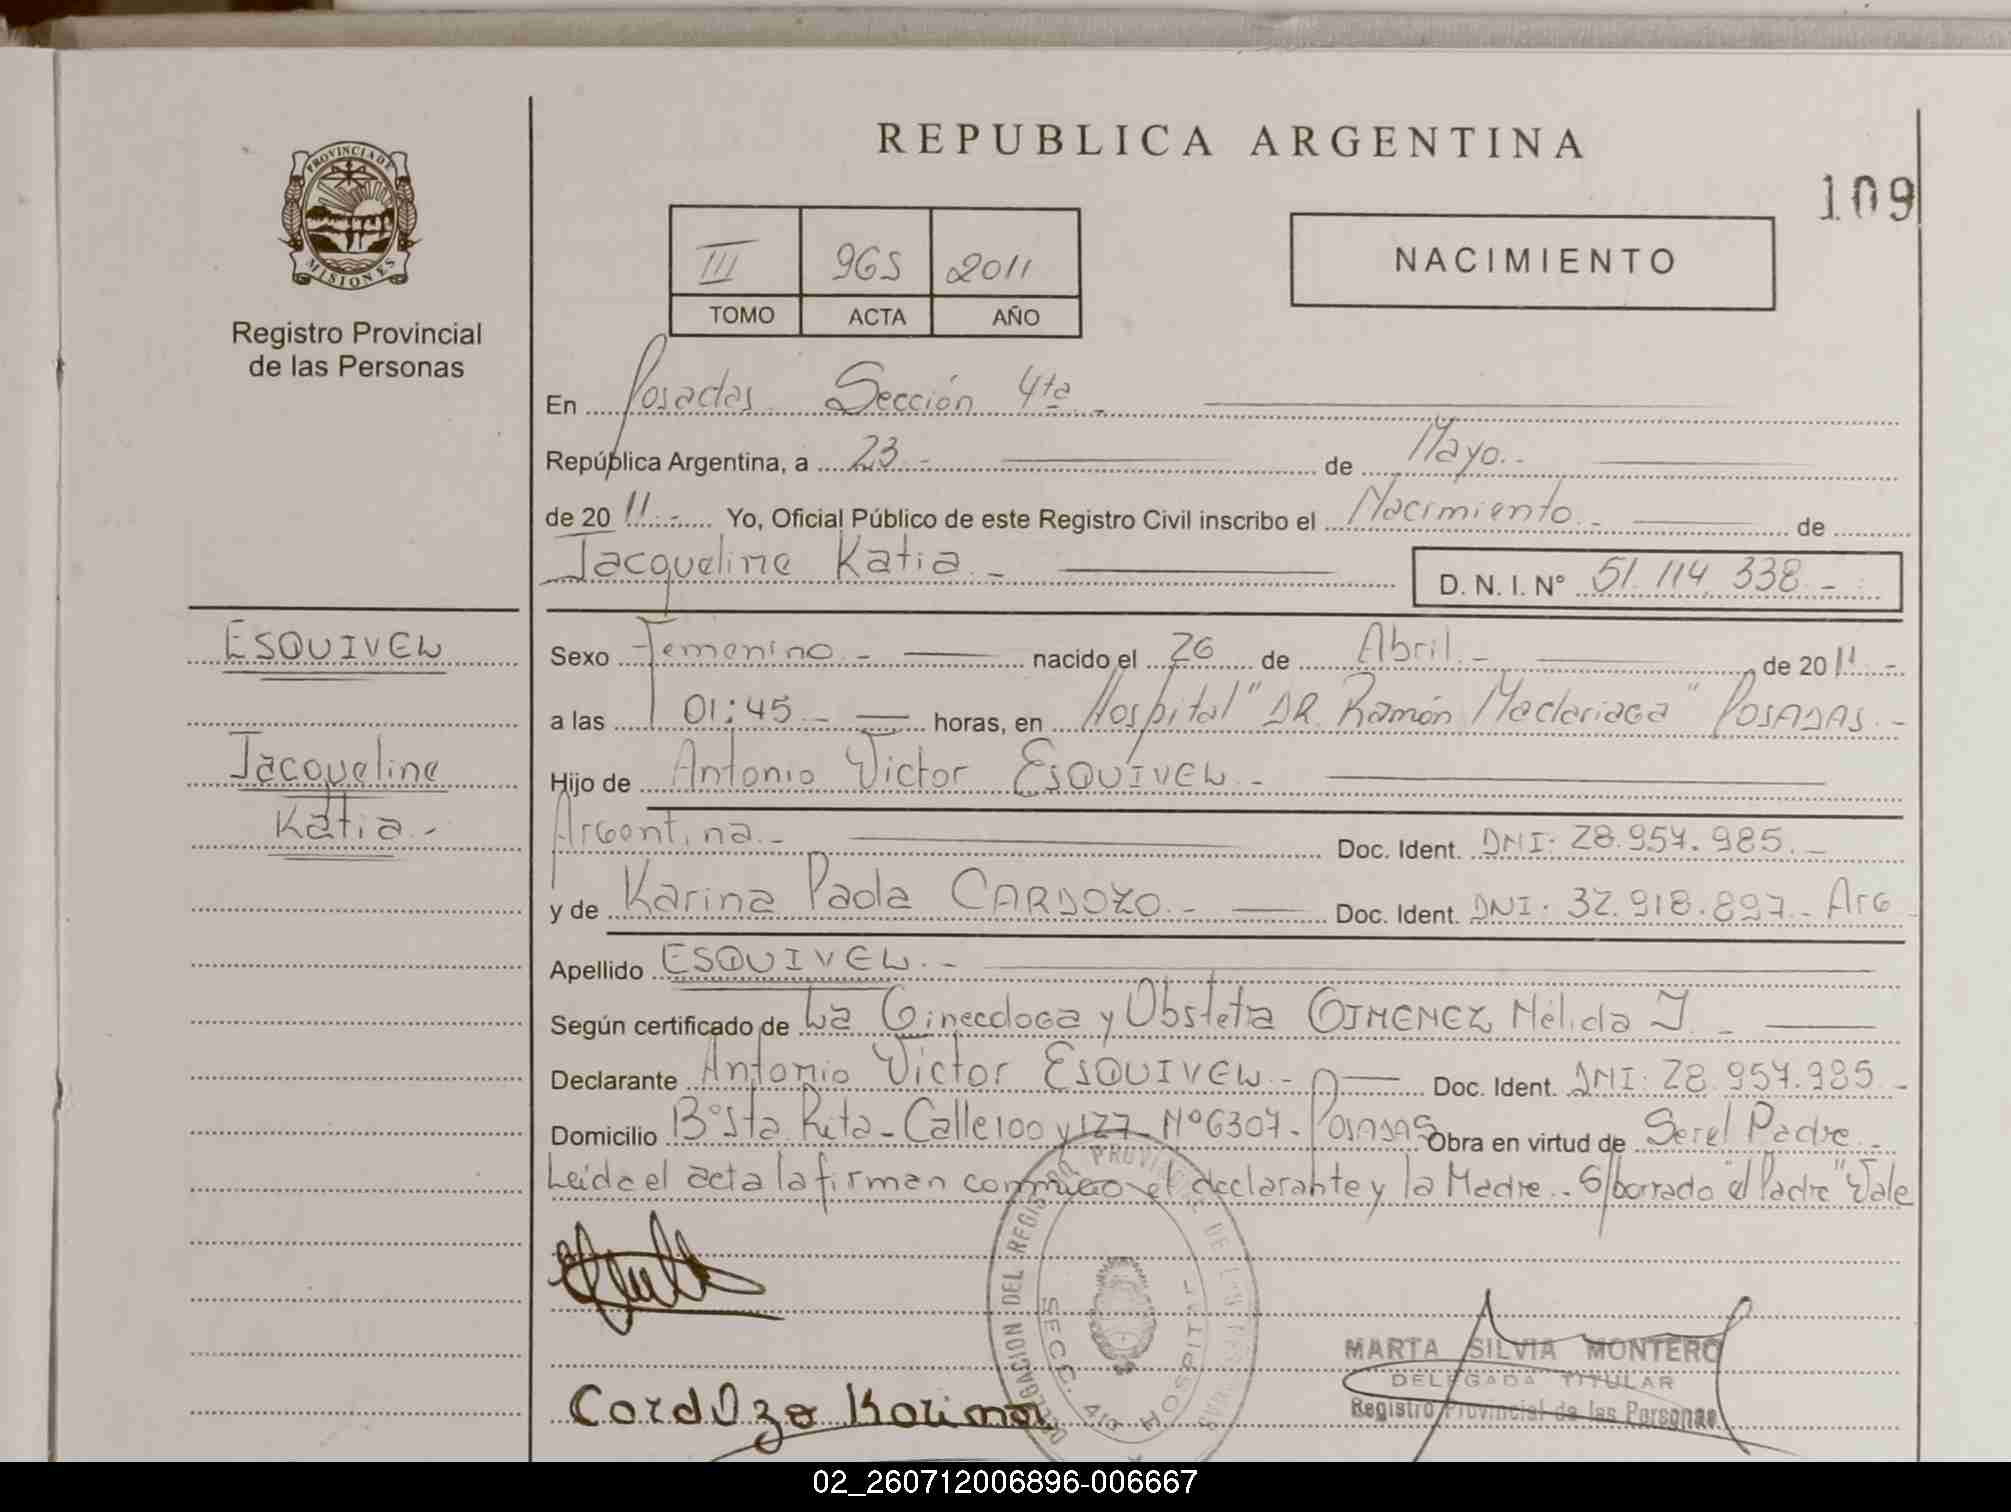 PROVINCIA DE
MISIONES
Registro Provincial
de las Personas
REPUBLICA ARGENTINA
109
III 965 2011
TOMO ACTA AÑO
NACIMIENTO
En Posadas Sección 4ta -
República Argentina, a 23.- de Mayo.-
de 20 11.- Yo, Oficial Público de este Registro Civil inscribo el Nacimiento.- de
Jacqueline Katia.- D. N. I. Nº 51.114.338.-
ESQUIVEL
Jacqueline
Katia.-
Sexo Femenino.- nacido el 26 de Abril.- de 2011.-
a las 01:45.- horas, en Hospital "DR. Ramón Madariaga" POSADAS.-
Hijo de Antonio Victor ESQUIVEL.-
Argentina.- Doc. Ident. DNI: 28.957.985.-
y de Karina Paola CARDOZO.- Doc. Ident. DNI: 32.918.897.- Arg
Apellido ESQUIVEL.-
Según certificado de La Ginecologa y Obstetra GIMENEZ Nélida J.-
Declarante Antonio Victor ESQUIVEL.- Doc. Ident. DNI: 28.957.985.-
Domicilio Bº Sta Rita - Calle 100 y 127 Nº 6307 - POSADAS Obra en virtud de Ser el Padre.-
Leída el acta la firman conmigo el declarante y la Madre.. S/borrado "el Padre" Vale
DELEGACION DEL REGISTRO PROVINCIAL DE LAS PERSONAS
SECC. 4ta HOSPITAL
MARTA SILVIA MONTERO
DELEGADA TITULAR
Registro Provincial de las Personas
Cardozo Karina
02_260712006896-006667